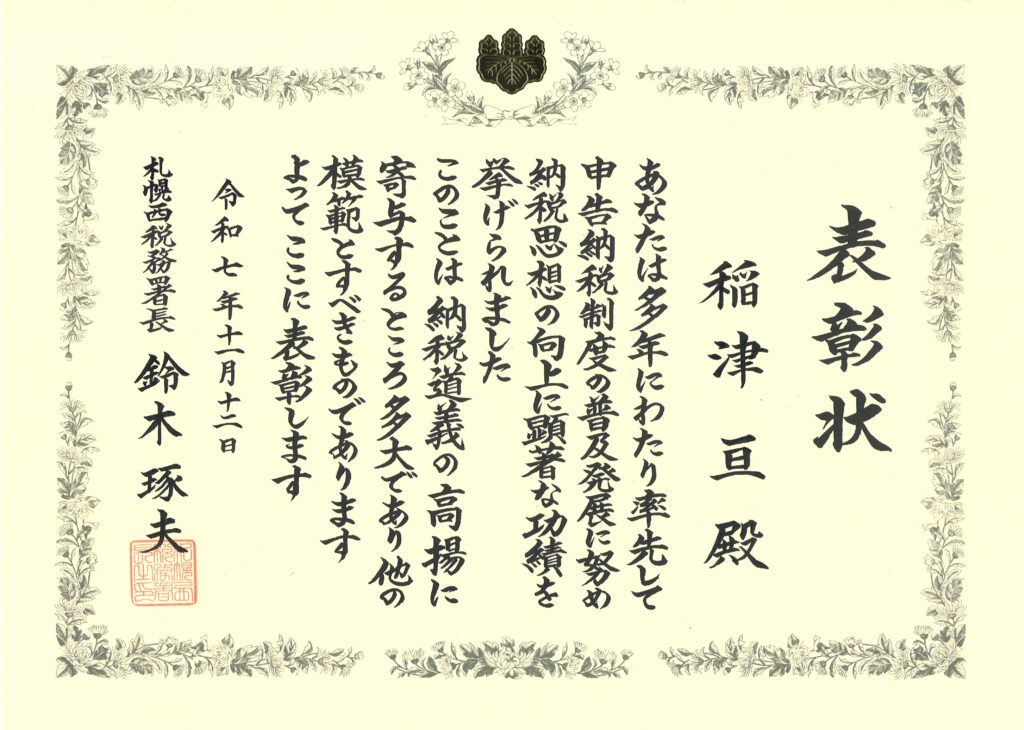 表彰状
稲津亘殿
あなたは多年にわたり率先して
申告納税制度の普及発展に努め
納税思想の向上に顕著な功績を
挙げられました
このことは納税道義の高揚に
寄与するところ多大であり他の
模範とすべきものであります
よってここに表彰します
令和七年十一月十二日
札幌西税務署長 鈴木琢夫
札幌西税務署長之印